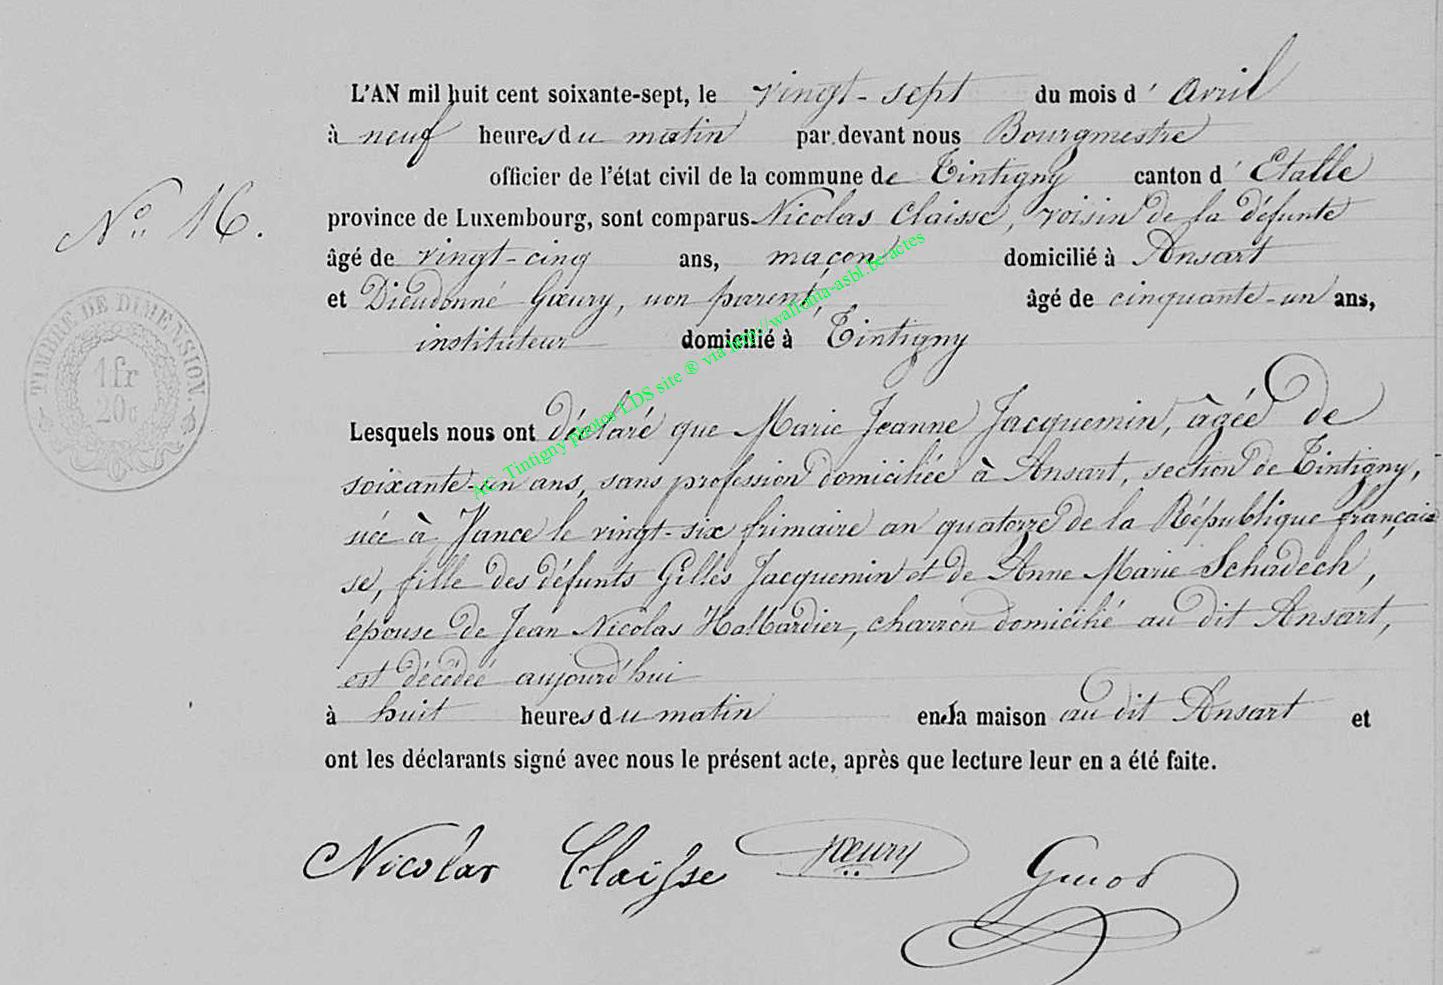 L'AN mil huit cent soixante-sept, le vingt-sept du mois d'avril
à neuf heures du matin par devant nous Bourgmestre
officier de l'état civil de la commune de Tintigny canton d'Etalle
No. 16.
province de Luxembourg, sont comparus Nicolas Claisse, voisin de la défunte
âgé de vingt-cinq ans, maçon domicilié à Ansart
et Dieudonné Gœury, non parent, âgé de cinquante-un ans,
instituteur domicilié à Tintigny
TIMBRE DE DIMENSION.
1 fr
20 c
Lesquels nous ont déclaré que Marie Jeanne Jacquemin, âgée de
soixante-un ans, sans profession domiciliée à Ansart, section de Tintigny,
née à Vance le vingt-six frimaire an quatorze de la République françai
se, fille des défunts Gilles Jacquemin et de Anne Marie Schadech,
épouse de Jean Nicolas Halbardier, charron domicilié au dit Ansart,
est décédée aujourd'hui
à huit heures du matin en la maison au dit Ansart et
ont les déclarants signé avec nous le présent acte, après que lecture leur en a été faite.
Nicolas Claisse Gœury
Ac. Tintigny Photos LDS site ® via http://wallonia-asbl.be/actes